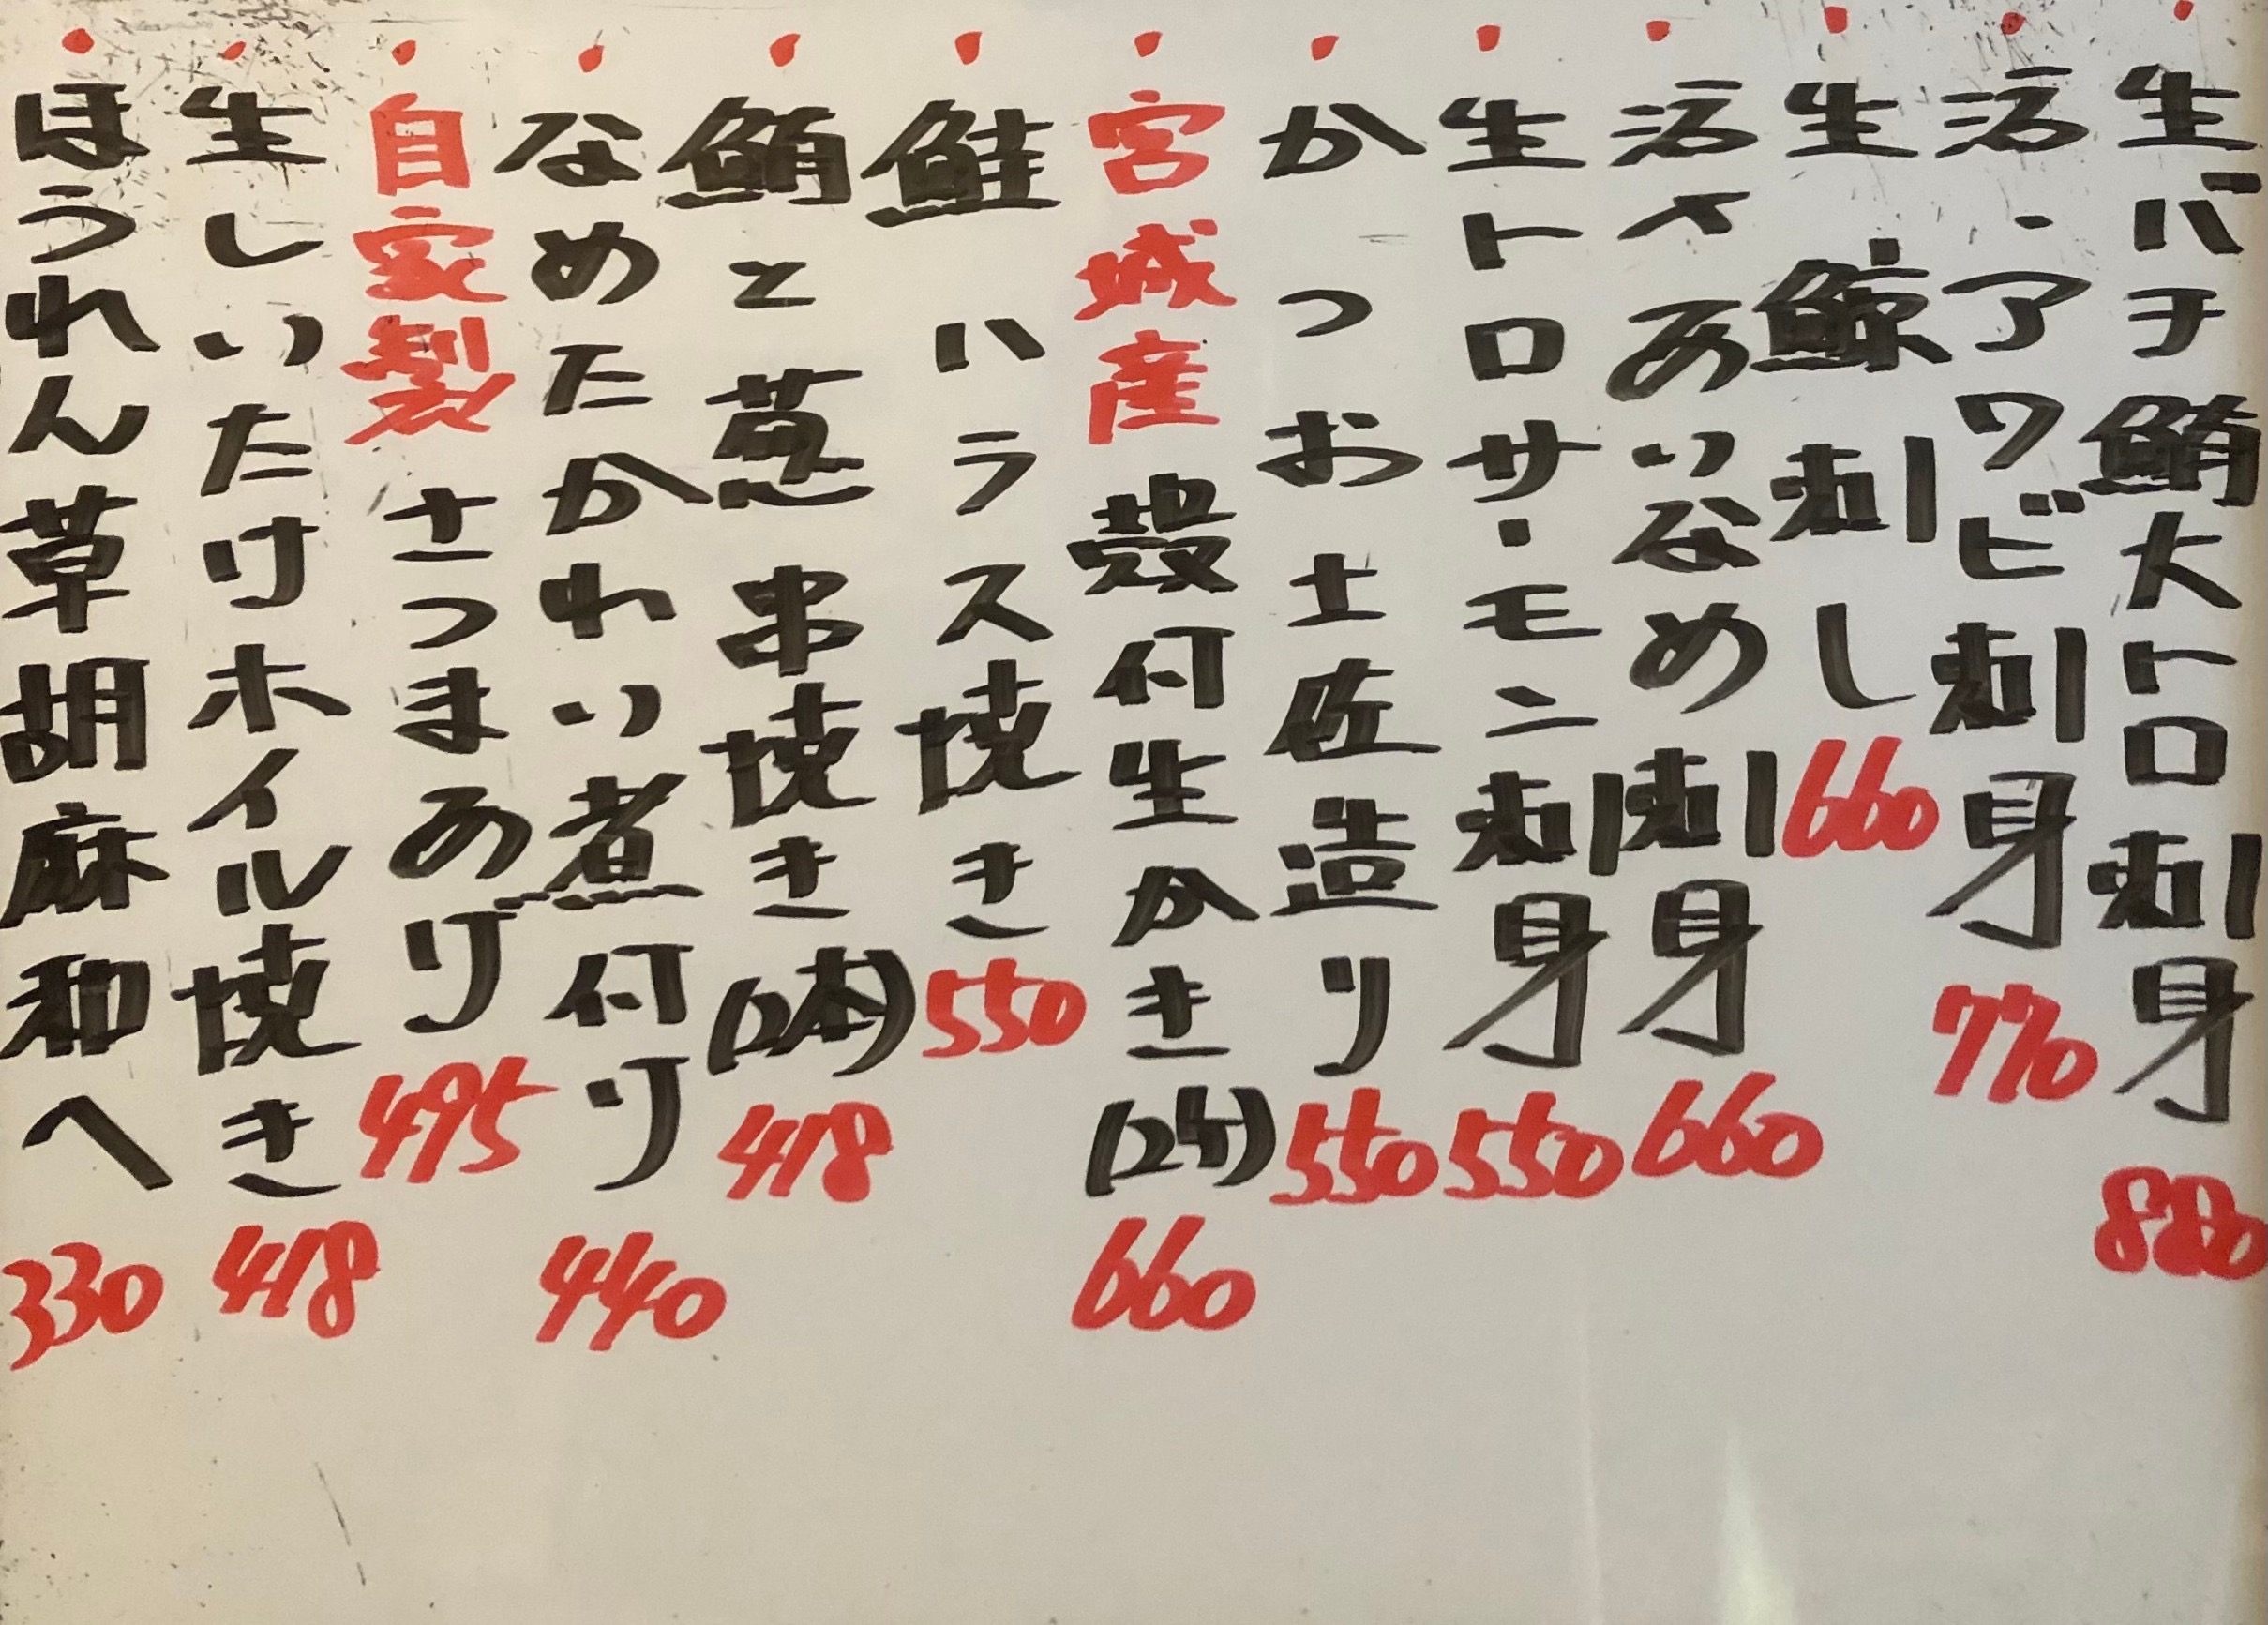 生バチ鮪大トロ刺身 880
活・アワビ刺身 770
生鯨刺し 660
活〆あいなめ刺身 660
生トロサーモン刺身 550
かつお土佐造り 550
宮城産 殻付生かき(2ケ) 660
鮭ハラス焼き 550
鮪と葱串焼き(2本) 418
なめたかれい煮付け 440
自家製さつまあげ 495
生しいたけホイル焼き 418
ほうれん草胡麻和へ 330